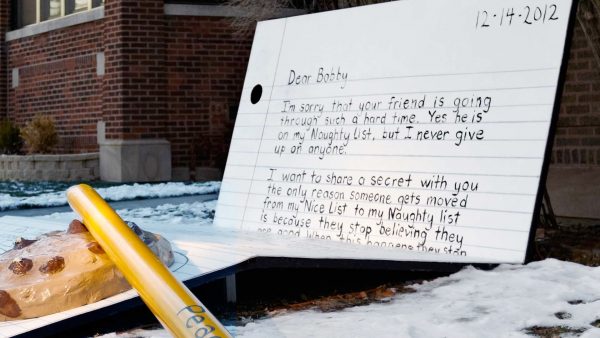 12-14-2012
Dear Bobby
I'm sorry that your friend is going
through such a hard time. Yes he is
on my Naughty List, but I never give
up on anyone.
I want to share a secret with you
the only reason someone gets moved
from my Nice List to my Naughty list
is because they stop believing they
are good. When this happens they stop
Peac